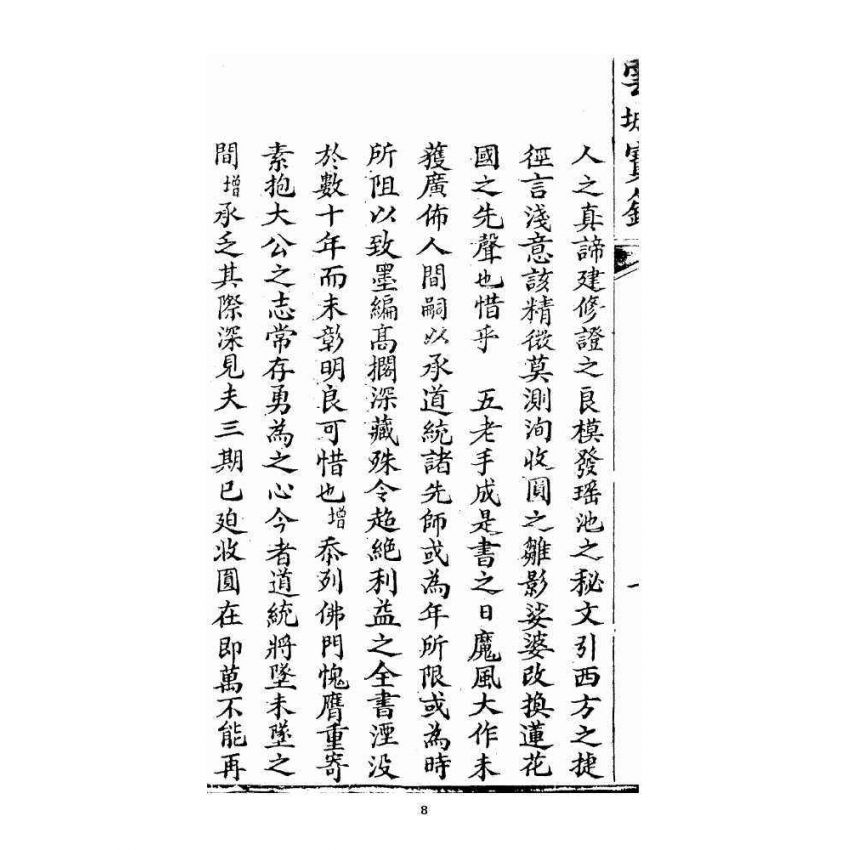 雲城寶籙
人之真諦建修證之良模發瑶池之秘文引西方之捷
徑言淺意該精微莫測洵收圓之雛影娑婆改換蓮花
國之先聲也惜乎　五老手成是書之日魔風大作未
獲廣佈人間嗣以承道統諸先師或為年所限或為時
所阻以致墨編高擱深藏殊令超絶利益之全書湮没
於數十年而未彰明良可惜也增忝列佛門愧膺重寄
素抱大公之志常存勇為之心今者道統將墜未墜之
間增承乏其際深見夫三期已廹收圓在即萬不能再
8